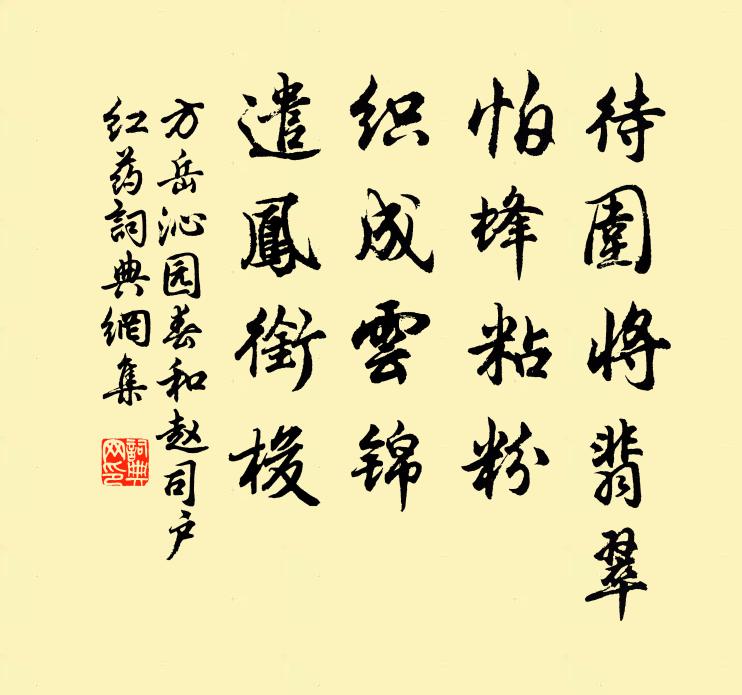 待围将翡翠
怕蜂粘粉
织成雲锦
遣鳳銜梭
方岳沁园春和赵司户
红药詞典網集
詞典
网印